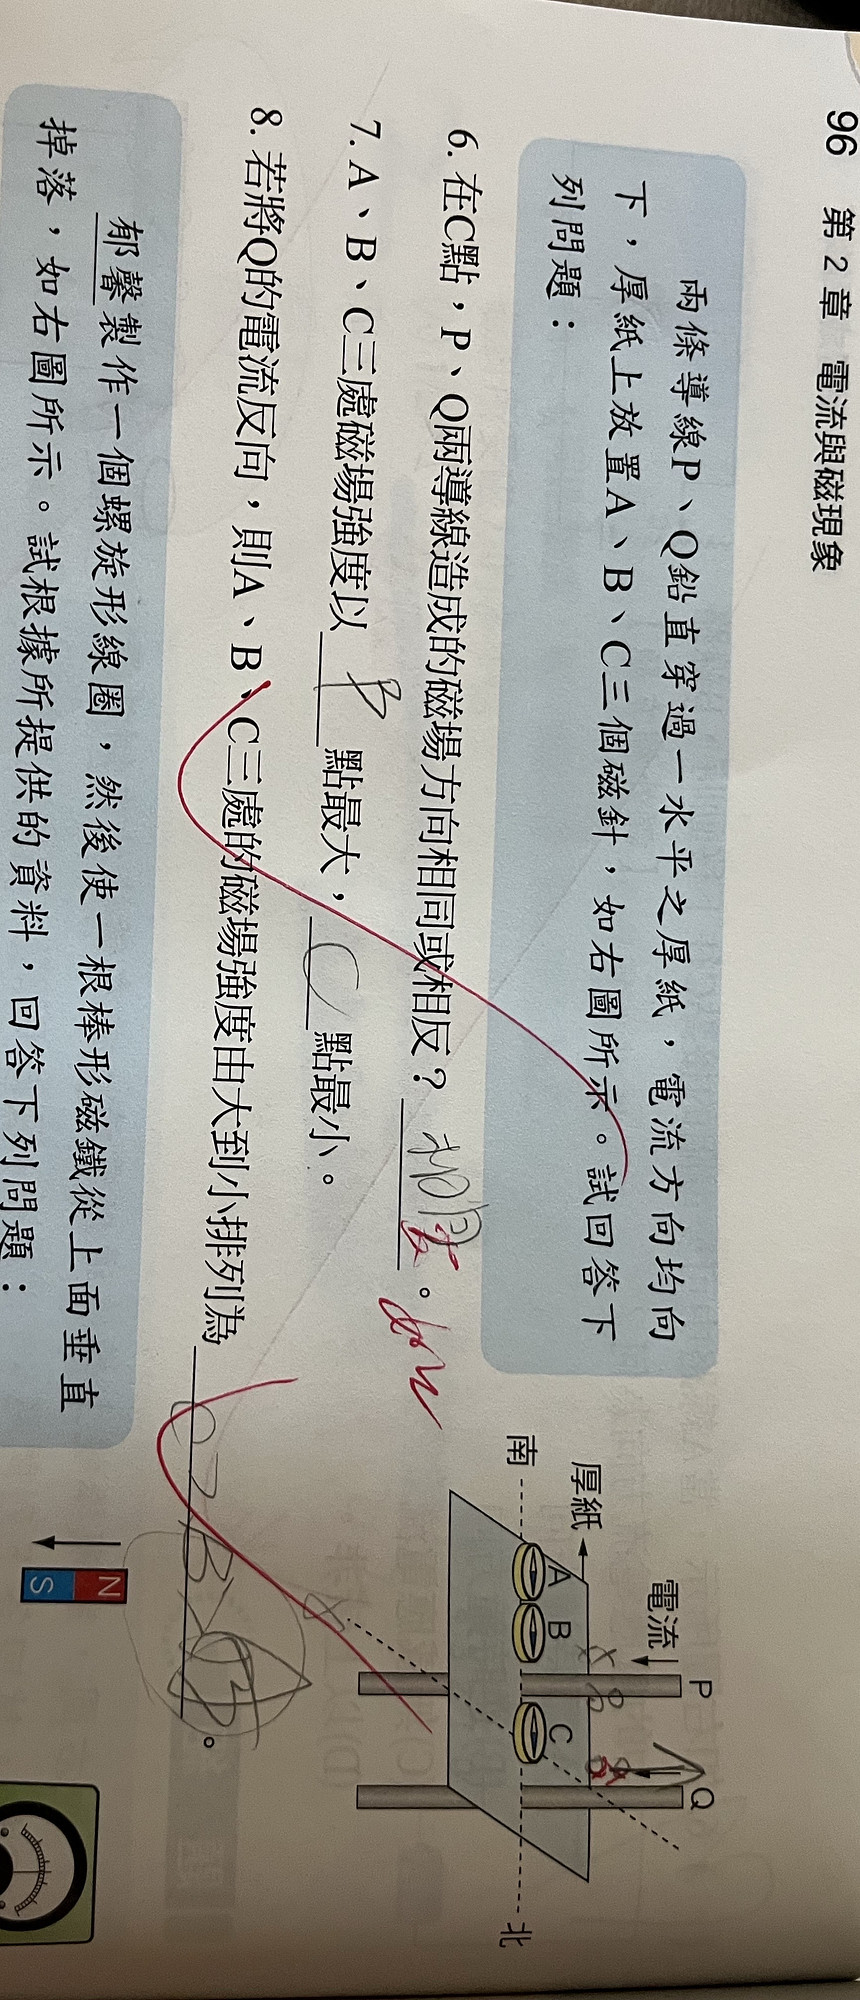 96 第2章 電流與磁現象
兩條導線P、Q鉛直穿過一水平之厚紙，電流方向均向
下，厚紙上放置A、B、C三個磁針，如右圖所示。試回答下
列問題：
電流
P
Q
厚紙
A
B
C
南
北
6. 在C點，P、Q兩導線造成的磁場方向相同或相反？ 相反。
7. A、B、C三處磁場強度以 B 點最大， C 點最小。
8. 若將Q的電流反向，則A、B、C三處的磁場強度由大到小排列為 C>B>A。
郁馨製作一個螺旋形線圈，然後使一根棒形磁鐵從上面垂直
掉落，如右圖所示。試根據所提供的資料，回答下列問題：
N
S